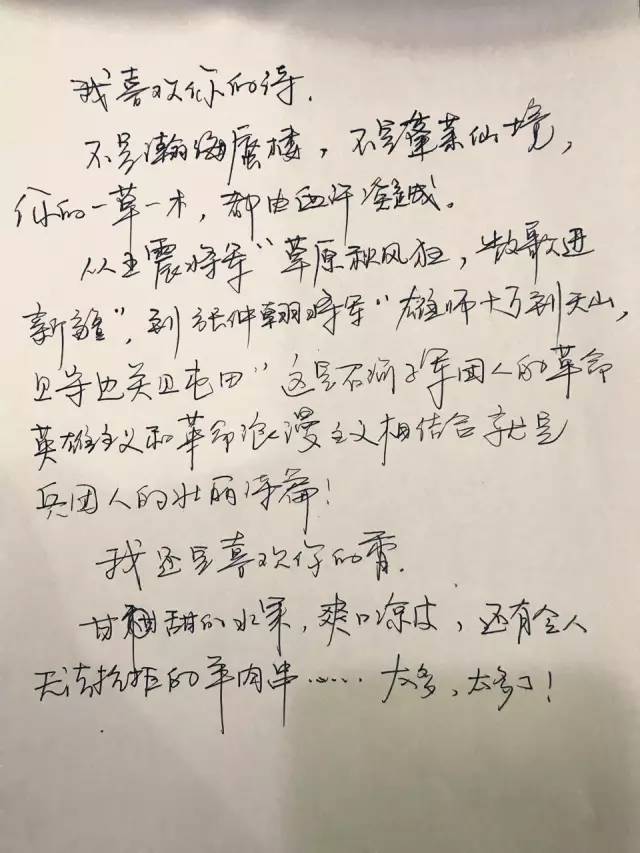 我喜欢你的诗.
不是瀚海蜃楼，不是蓬莱仙境，
你的一草一木，都由血汗浇成。
从王震将军“草原秋风狂，凯歌进
新疆”，到张仲翰将军“雄师十万到天山，
且守边关且屯田”这是石河子军团人的革命
英雄主义和革命浪漫主义相结合就是
兵团人的壮丽诗篇！
我还是喜欢你的香.
甘甜的水果，爽口凉皮，还有令人
无法抗拒的羊肉串……太多，太多了！